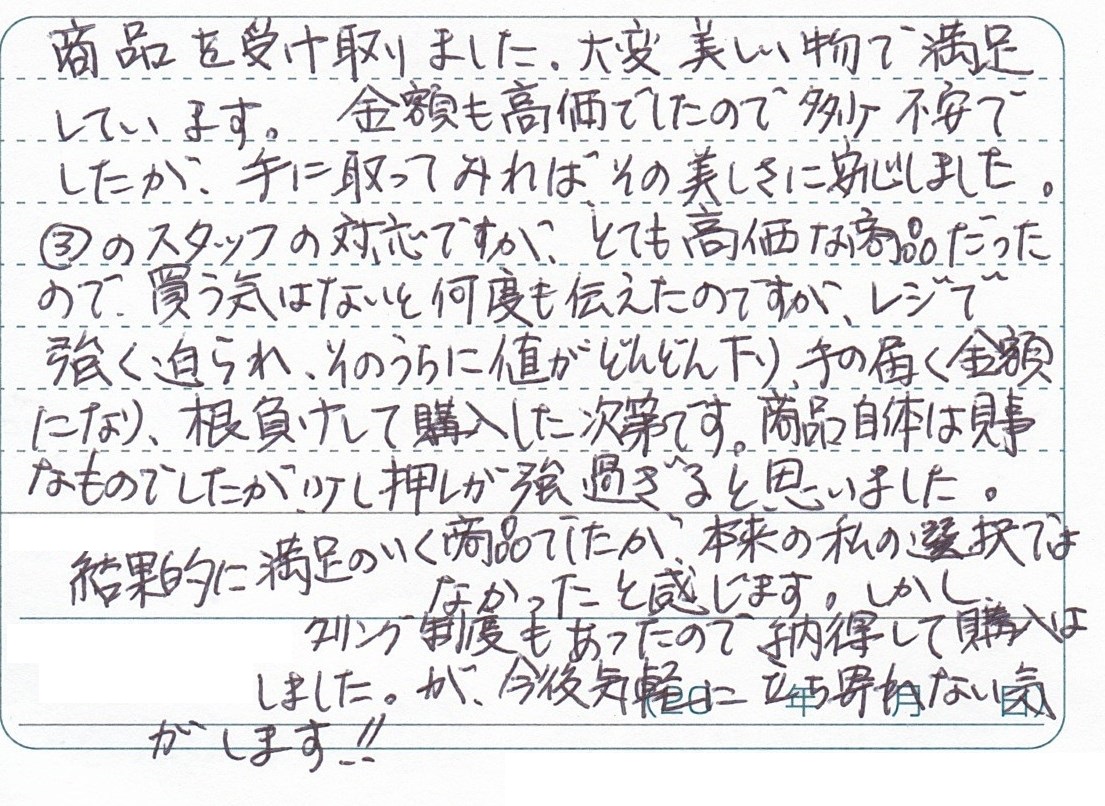 商品を受け取りました。大変美しい物で満足
しています。 金額も高価でしたので多少 不安で
したが、手に取ってみればその美しさに安心しました。
③のスタッフの対応ですが、とても高価な商品だった
ので、買う気はないと何度も伝えたのですが、レジで
強く迫られ、そのうちに値がどんどん下り、手の届く金額
になり、根負けして購入した次第です。商品自体は見事
なものでしたが少し押しが強過ぎると思いました。
結果的に満足のいく商品でしたが、本来の私の選択では
なかったと感じます。しかし、
クーリング制度もあったので納得して購入は
しました。が、今後気軽に立ち寄れない気
がします!!
(20 年 月 日)